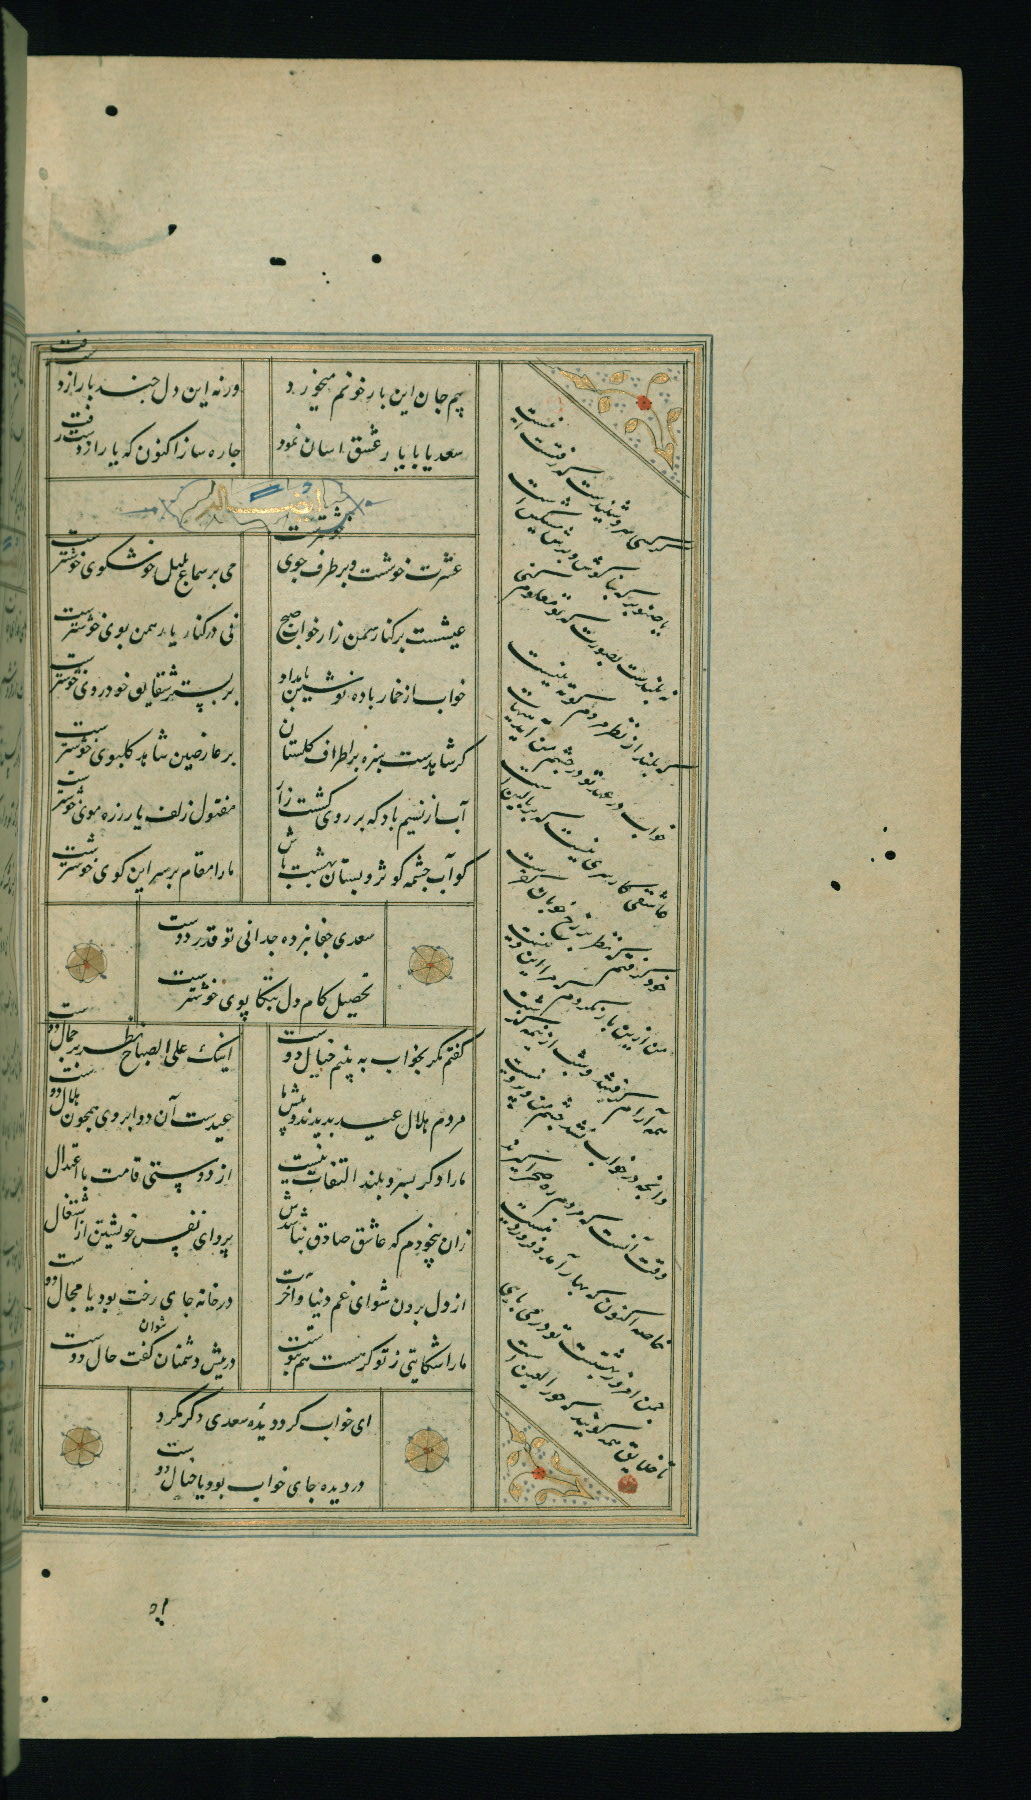 بیم جان این بار خونم میخورد
ورنه این دل چند بار از دست رفت
سعدیا با یار عشق آسان نمود
چاره ساز اکنون که یار از دست رفت
ایضاً له
عشرت خوشست و بر طرف جوی خوشترست
می بر سماع بلبل خوشگوی خوشترست
عیشست بر کنار سمن زار خواب صبح
نی در کنار یار سمن بوی خوشترست
خواب از خمار باده نوشین بامداد
بر بستر شقایق خودروی خوشترست
گر شاهدست سبزه بر اطراف گلستان
بر عارضین شاهد گلبوی خوشترست
آب از نسیم باد که بر روی کشت زار
مفتول زلف یار زره موی خوشترست
گو آب چشمه کوثر و بستان بهشت باش
ما را مقام بر سر این کوی خوشترست
سعدی جفا نبرده چه دانی تو قدر دوست
تحصیل کام دل بتکاپوی خوشترست
گفتم مگر بخواب به بینم خیال دوست
اینک علی الصباح نظر بر جمال دوست
مردم هلال عید بدیدند و پیش ما
عیدست آن دو ابروی همچون هلال دوست
ما را دگر بسرو بلند التفات نیست
از دوستی قامت با اعتدال دوست
زان بیخودم که عاشق صادق نباشدش
پروای نفس خویشتن از اشتغال دوست
از دل برون شو ای غم دنیا و آخرت
در خانه جای رخت بود یا مجال دوست
ما را شکایتی ز تو گر هست هم بتوست
در پیش دشمنان نتوان گفت حال دوست
ای خواب گرد دیده سعدی دگر مگرد
در دیده جای خواب بود یا خیال دوست
نه بلندست بصورت که تو معلوم کنی
که بلند از نظر مردم کوته بینست
خواب در عهد تو در چشم من آید هیهات
عاشقی کار سری نیست که بر بالینست
همه آرام گرفتند و شب از نیمه گذشت
وانچه در خواب نشد چشم من و پروینست
خود گرفتم که نظر بر رخ خوبان کفرست
من ازین باز نگردم که مرا این دینست
وقت آنست که مردم ره صحرا گیرند
خاصه اکنون که بهار آمد و فروردینست
چمن امروز بهشتست و تو در می بایی
تا خلایق همه گویند که حور العینست